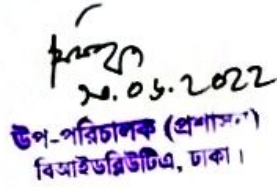 ২০.০৬.2022
উপ-পরিচালক (প্রশাসন)
বিআইডব্লিউটিএ, ঢাকা।